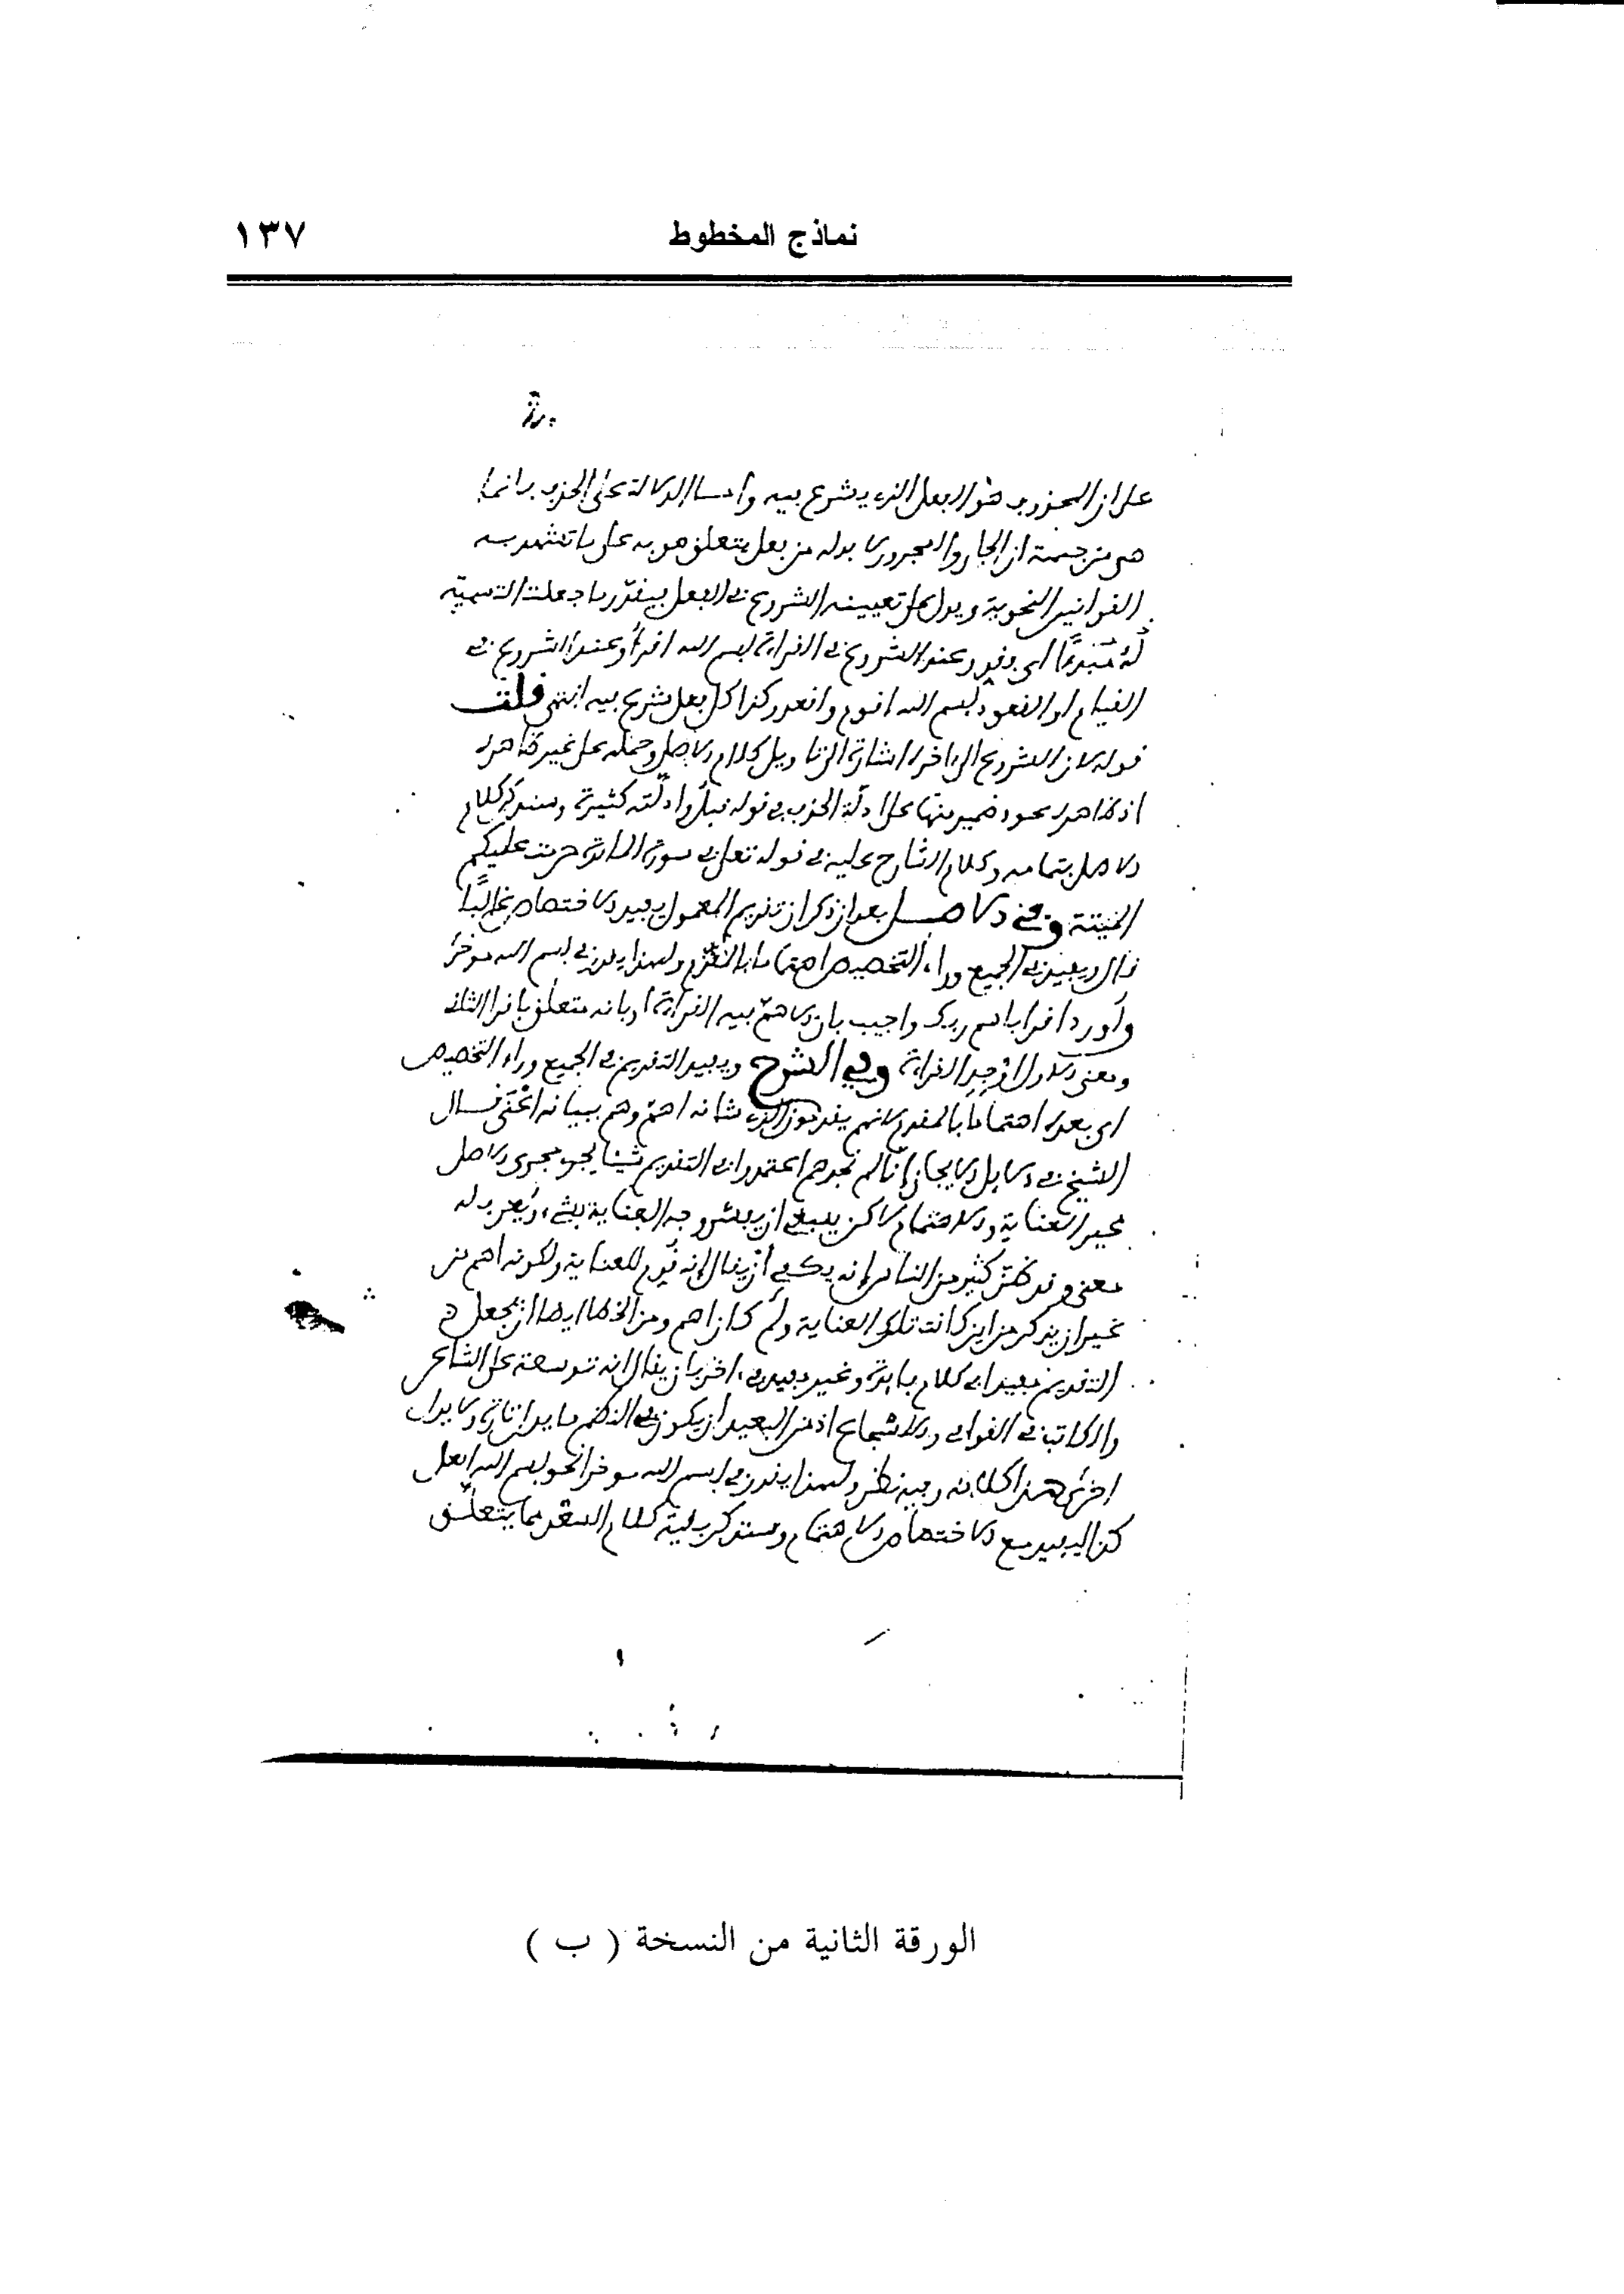 نماذج المخطوط ١٣٧
على ان المحذوف هو الفعل الذي يشرع فيه واما الدلالة على الحذف فانما
هي من جهة ان الجار والمجرور لا بد له من فعل يتعلق هو به على ما تشهد به
القوانين النحوية ويدل على تعيينه الشروع في الفعل فيقدر ما جعلت التسمية
له مبتدءا اي يقدر عند الشروع في القراءة بسم الله اقرأ وعند الشروع في
القيام او القعود بسم الله اقوم واقعد وكذا كل فعل شرع فيه انتهى قلت
قوله لان الشروع الى اخره اشارة الى تاويل كلام الاصل وحمله على غير ظاهره
اذ ظاهره عود ضمير منها على ادلة الحذف في قوله قبل وادلته كثيرة وسنذكر كلام
الاصل بتمامه وكلام الشارح عليه في قوله تعالى في سورة المائدة حرمت عليكم
الميتة وفي الاصل بعد ان ذكر ان تقديم المعمول يفيد الاختصاص غالبا
قال ويفيد في الجميع وراء التخصيص اهتماما بالمقدم ولهذا يقدر في بسم الله موخرا
واورد اقرا باسم ربك واجيب بان الاهم فيه القراءة او بانه متعلق باقرا الثاني
ومعنى الاول اوجد القراءة وفي الشرح ويفيد التقديم في الجميع وراء التخصيص
اي بعده اهتماما بالمقدم لانهم يقدمون الذي شانه اهم وهم ببيانه اعنى قال
الشيخ في دلايل الايجاز انا لم نجدهم اعتمدوا في التقديم شيئا يجري مجرى الاصل
غير العناية والاهتمام لاكن ينبغي ان يفسر وجه العناية بشيء ويعرف له
معنى وقد ظن كثير من الناس انه يكفي ان يقال انه قدم للعناية ولكونه اهم من
غير ان يذكر من اين كانت تلك العناية ولم كان اهم ومن الخطا ايضا ان يجعل
التقديم مفيدا في كلام فايدة وغير مفيد في اخر بان يقال انه توسعة على الشاعر
والكاتب في القوافي والاسجاع اذ من البعيد ان يكون في النظم ما يدل تارة ولا يدل
اخرى هذا كلامه وفيه نظر ولهذا يقدر في بسم الله موخرا نحو بسم الله افعل
كذا ليفيد مع الاختصاص الاهتمام وسنذكر بقية كلام السعد مما يتعلق
الورقة الثانية من النسخة ( ب )